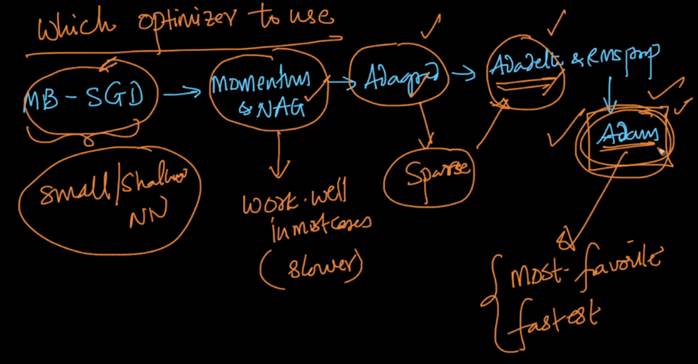 Which optimizer to use
MB-SGD → Momentum & NAG → Adagrad → Adadelta & RMSprop
Adam
Small/Shallow
NN
Sparse
work well
in most cases
(slower)
most-favorite
fastest